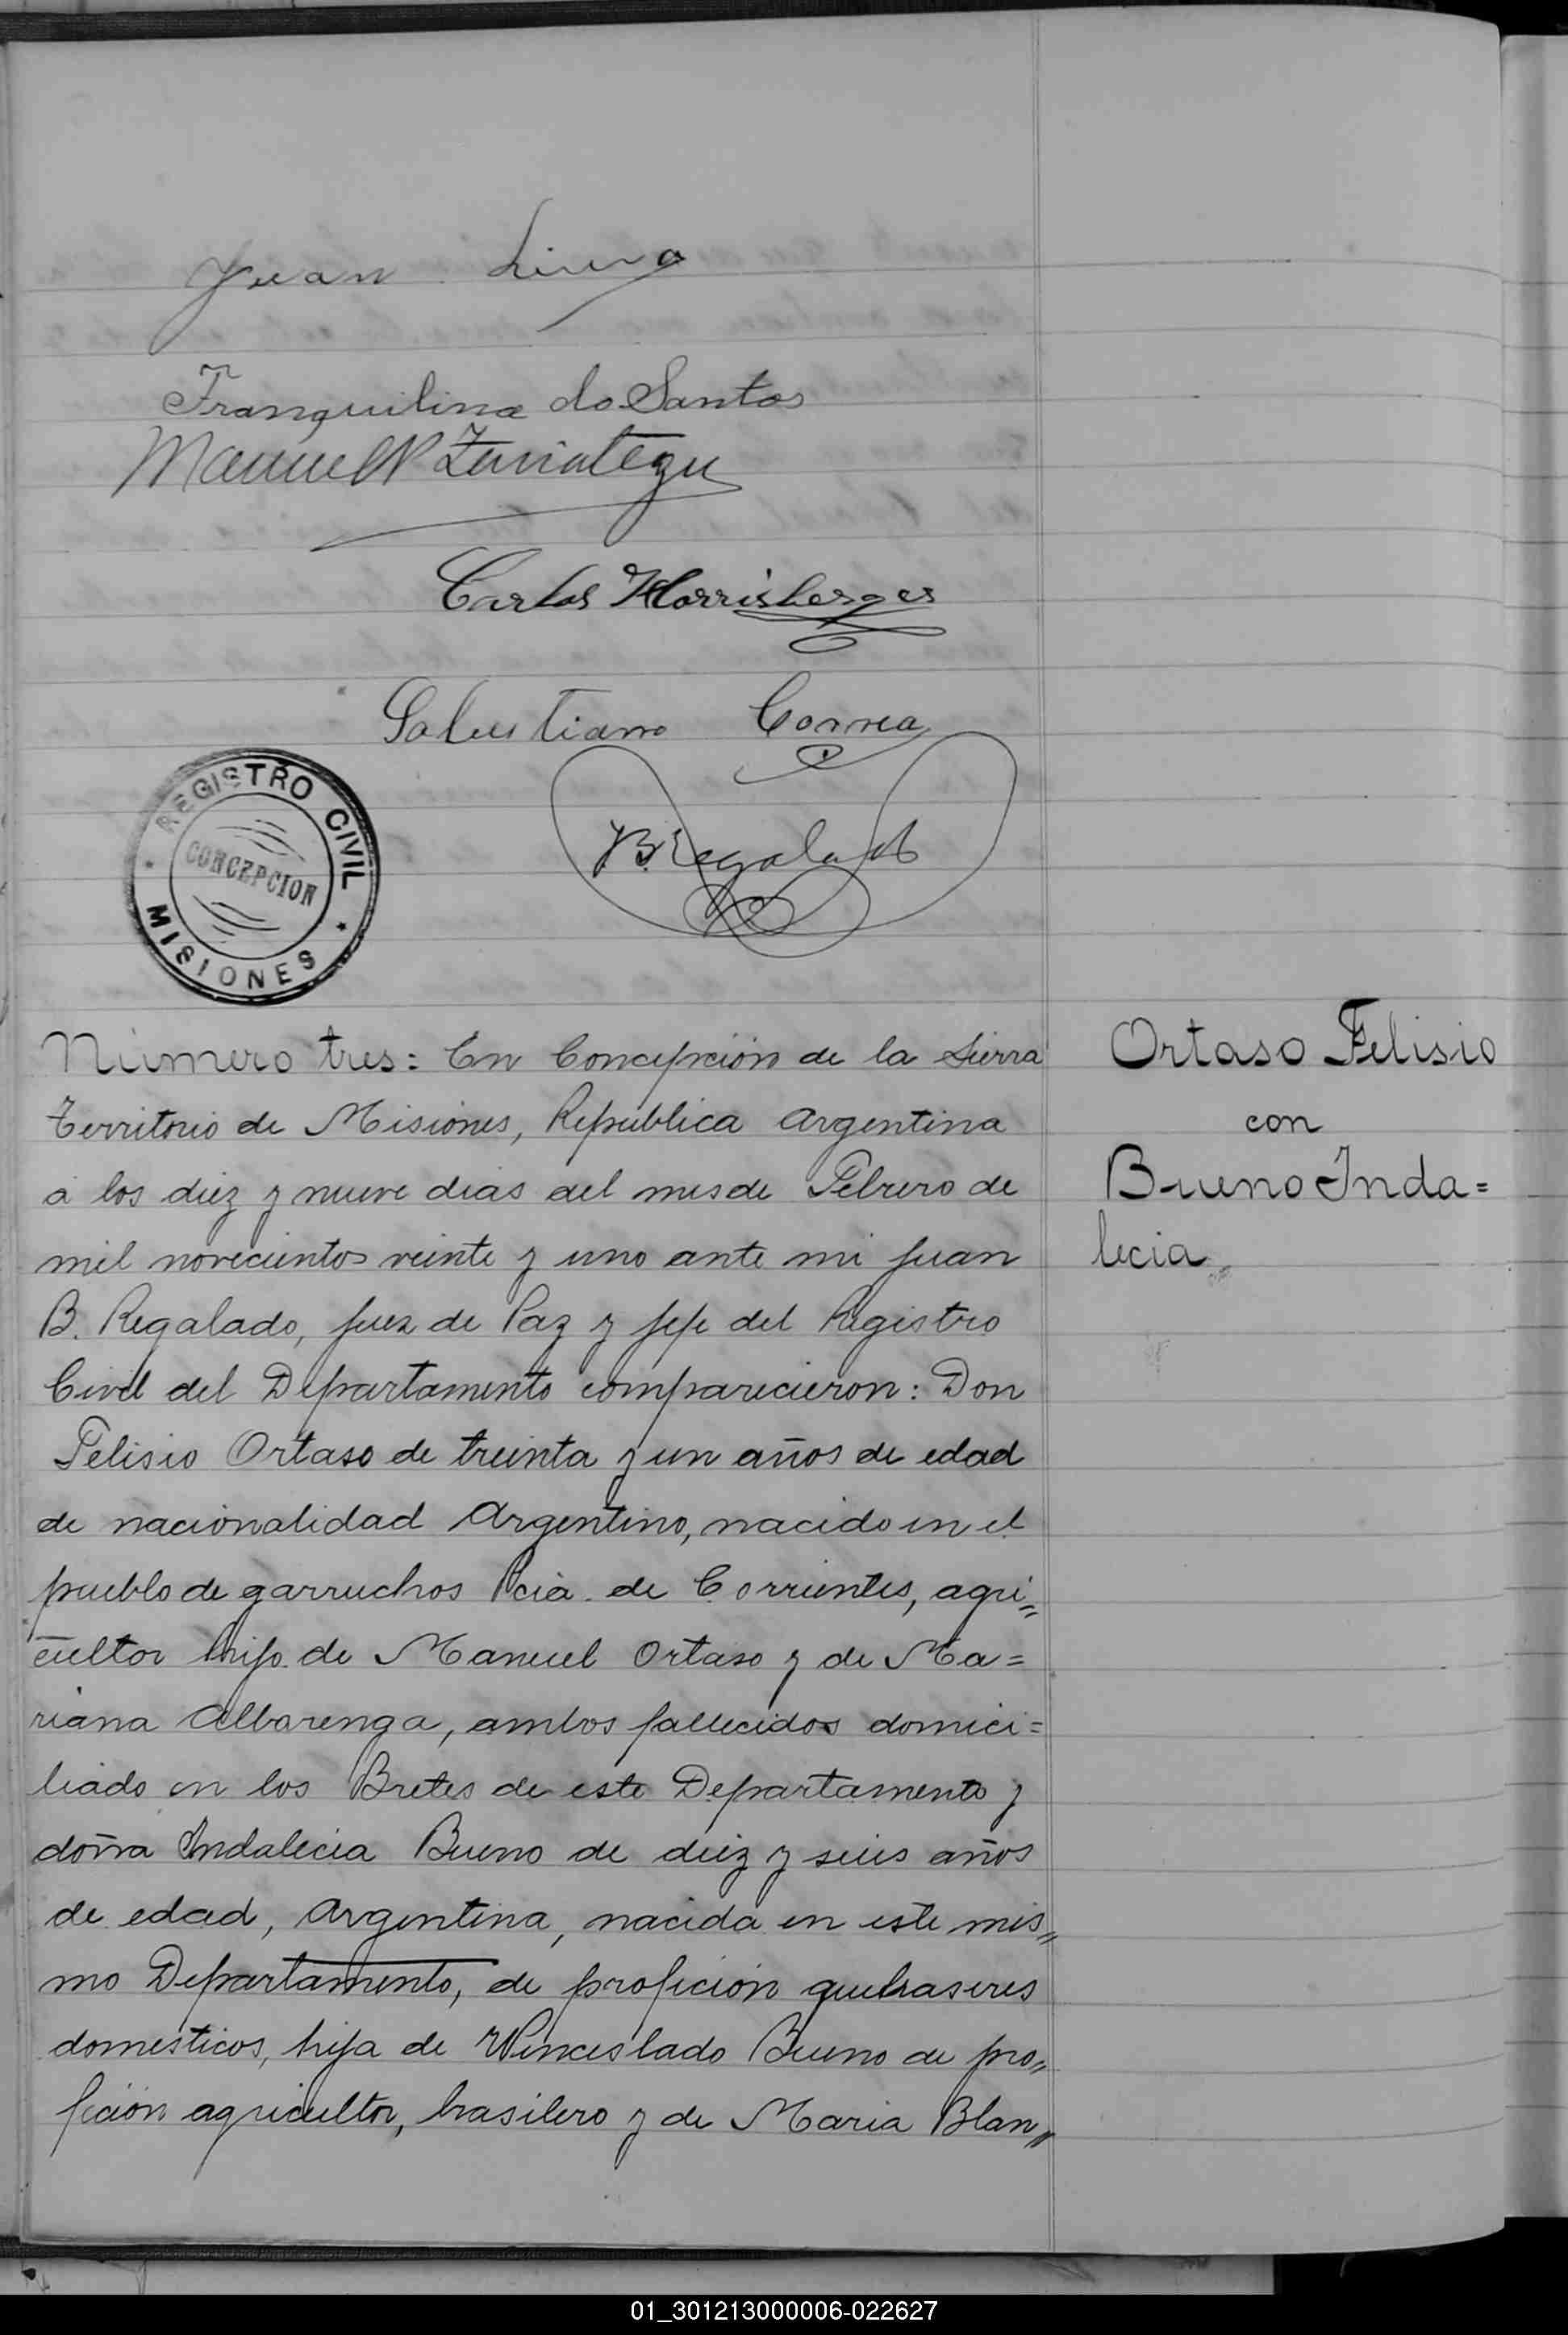 Juan
Tranquilina do Santos
Manuel
Carlos Horrisberger
Salustiano Correa
JB Regalado
REGISTRO CIVIL
CONCEPCION
MISIONES
Número tres: En Concepción de la Sierra
territorio de Misiones, República Argentina
á los diez y nueve dias del mes de Febrero de
mil novecientos veinte y uno ante mi Juan
B. Regalado, Juez de Paz y Jefe del Registro
Civil del Departamento comparecieron: Don
Felisio Ortaso de treinta y un años de edad
de nacionalidad Argentino, nacido en el
pueblo de garruchos Pcia. de Corrientes, agri„
cultor hijo de Manuel Ortaso y de Ma=
riana Albarenga, ambos fallecidos domici=
liado en los Bretes de este Departamento y
doña Indalecia Bueno de diez y seis años
de edad, Argentina, nacida en este mis„
mo Departamento, de profición quehaseres
domesticos, hija de Winceslado Bueno de pro„
fición agricultor, brasilero y de Maria Blan„
Ortaso Felisio
con
Bueno Inda=
lecia
01_301213000006-022627